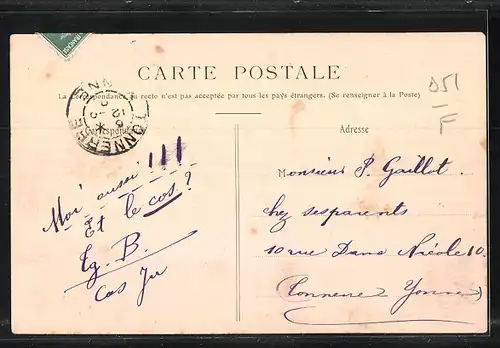 CARTE POSTALE
La Correspondance au recto n'est pas acceptée par tous les pays étrangers. (Se renseigner à la Poste)
Correspondance
TONNERRE
Adresse
D51
F
Moi aussi !!!
Et le cos ?
Eg. B.
Cas
Monsieur P. Gaillot
chez sesparents
10 rue Dame Nicole 10.
(Tonnerre Yonne)